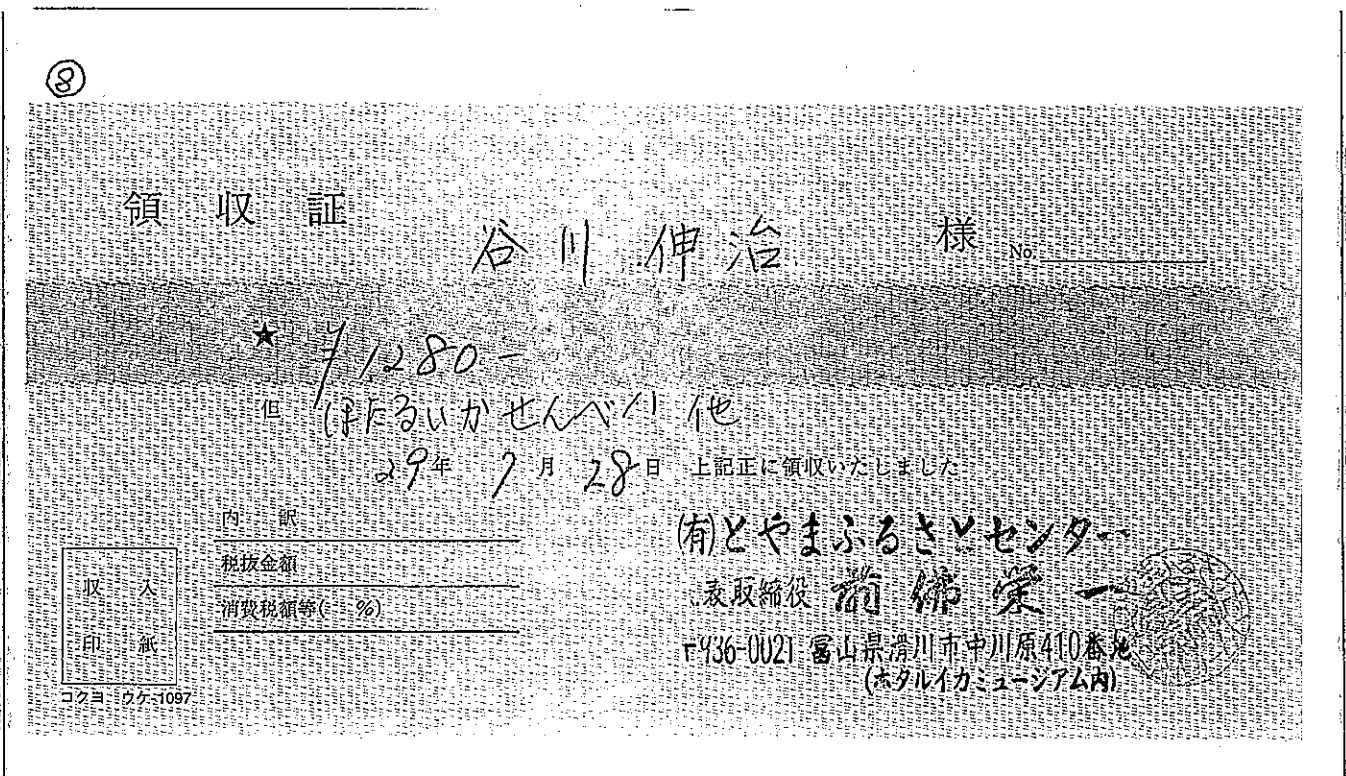 ⑧
領収証 谷川 伸治 様 No.
★ ¥1280-
但 ほたるいかせんべい 他
29年 7月 28日 上記正に領収いたしました
内 訳
税抜金額
消費税額等( %)
収入
印紙
コクヨ ウケ-1097
(有)とやまふるさとセンター
表取締役 前佛栄一
〒936-0021 富山県滑川市中川原410番地
(ホタルイカミュージアム内)